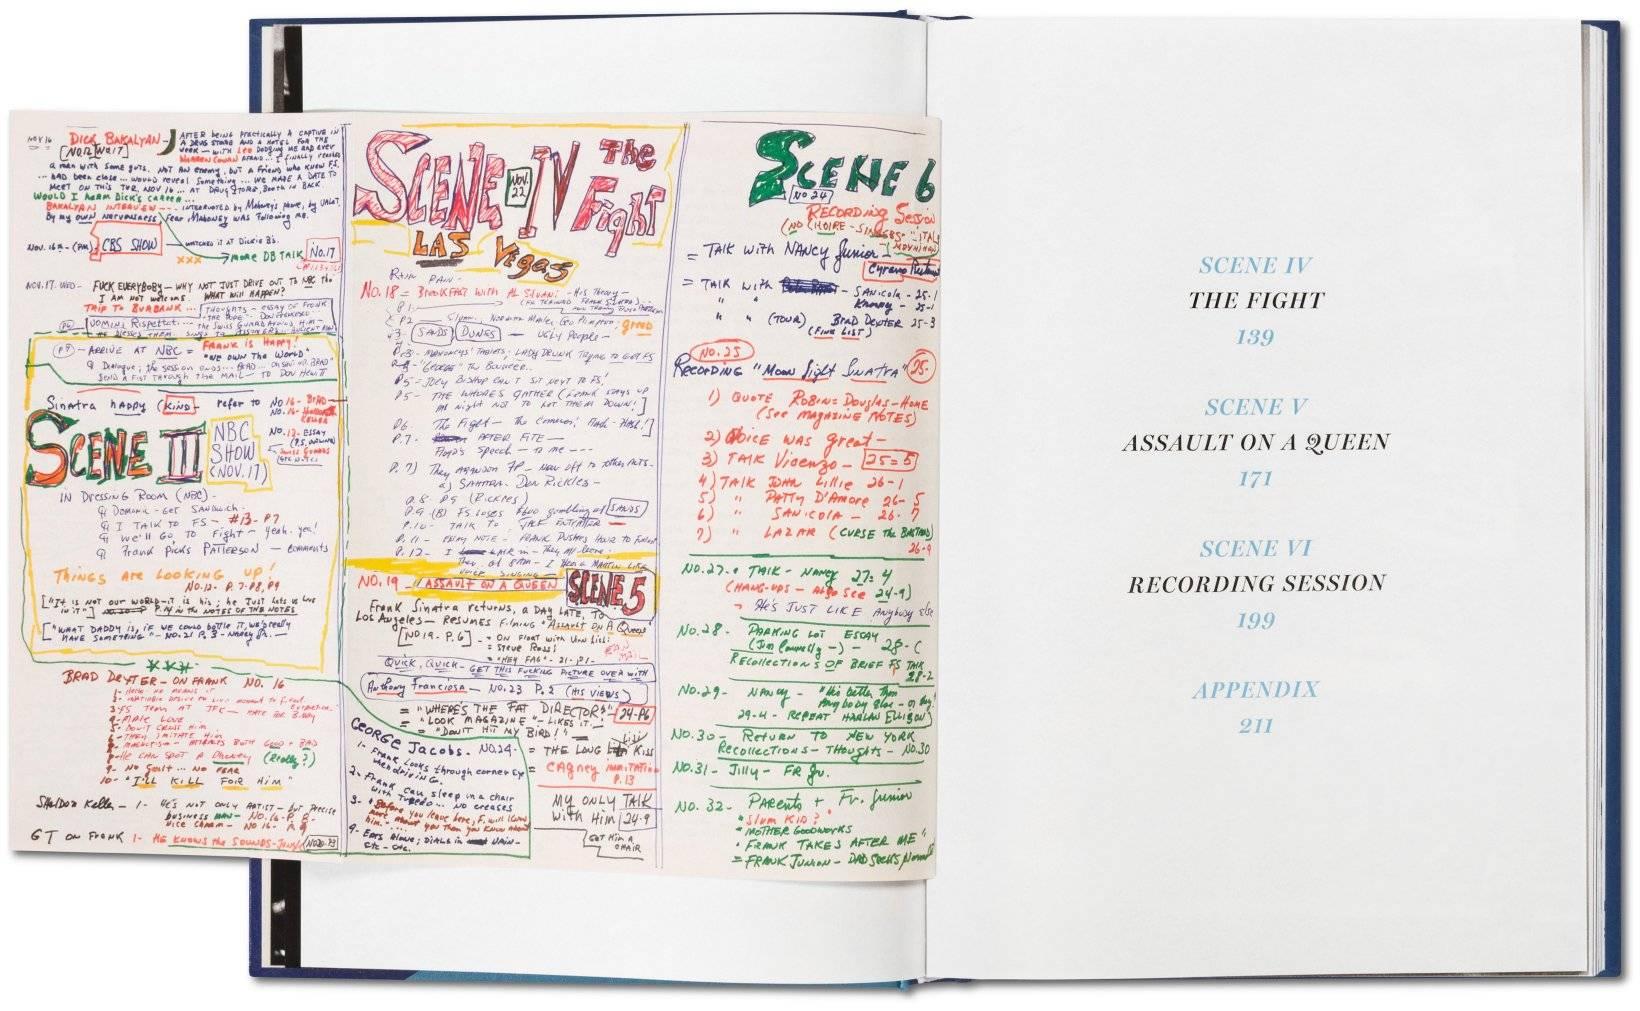 NOV 16
DICK BAKALYAN -
[NO.12, NO.17]
AFTER BEING PRACTICALLY A CAPTIVE IN
A DRUG STORE AND A HOTEL FOR THE
WEEK - WITH LEO DODGING ME AND EVEN
WARREN COWAN AFRAID... I FINALLY REACHED
A MAN WITH SOME GUTS. NOT AN ENEMY, BUT A FRIEND WHO KNEW FS,
... HAD BEEN CLOSE... WOULD REVEAL SOMETHING... WE MADE A DATE TO
MEET ON THIS TUE, NOV 16... AT DRUG STORE, BOOTH IN BACK.
WOULD I HARM DICK'S CAREER...
BAKALYAN INTERVIEW --- INTERRUPTED BY MAHONEY'S PHONE, BY
BY MY OWN NERVOUSNESS, FEAR MAHONEY WAS FOLLOWING ME.
NOV. 16TH - (PM) CBS SHOW - WATCHED IT AT DICKIE B'S.
XXX → MORE DB TALK NO.17
NOV. 17. WED - FUCK EVERYBODY - WHY NOT JUST DRIVE OUT TO NBC THO
I AM NOT WELCOME. WHAT WILL HAPPEN?
TRIP TO BURBANK... THOUGHTS - ESSAY OF FRANK
"THE POPE" - DON FRANCESCO
UOMINI RISPETTATI... THE SWISS GUARD AROUND HIM -
(P9) - ARRIVE AT NBC = FRANK IS HAPPY!
"WE OWN THE WORLD"
DIALOGUE; THE SESSION ENDS...
SEND A FIST THROUGH THE MAIL - TO DON HEWITT
SINATRA HAPPY (KIND - REFER TO NO 16 - BRAD
SCENE III
NBC
SHOW
(NOV. 17)
NO. 12 - ESSAY
SWISS GUARDS
IN DRESSING ROOM (NBC) -
DOMINIC - GET SANDWICH -
I TALK TO FS - #13 - P7
WE'LL GO TO FIGHT - YEAH. YEA!
FRANK PICKS PATTERSON - COMMENTS
THINGS ARE LOOKING UP!
NO.12 - P. 7-P8, P9
["IT IS NOT OUR WORLD - IT IS HIS; HE JUST LETS US LIVE
IN IT"] P. 14 IN THE NOTES OF THE NOTES
["WHAT DADDY IS, IF WE COULD BOTTLE IT, WE'D REALLY
HAVE SOMETHING" - NO. 21 P. 3 - NANCY JR. -
XXX
BRAD DEXTER - ON FRANK NO. 16
3 - FS TEAM AT JFK -
4 - MALE LOVE
5 - DON'T CROSS HIM
6 - THEY IMITATE HIM
7 - MAGNETISM - ATTRACTS BOTH GOOD + BAD
8 - HE CAN SPOT A PHONEY (REALLY?)
9 - NO GUILT... NO FEAR
10 - "I'LL KILL FOR HIM"
SHELDON KELLER - 1 - HE'S NOT ONLY ARTIST - BUT PRECISE
BUSINESS MAN - NO. 16 - P. 8 -
VICE CHARM - NO 16 - P. 9
GT ON FRANK 1 - HE KNOWS THE SOUNDS -
SCENE IV
NOV.
22
THE
FIGHT
LAS VEGAS
RAIN RAIN -
NO. 18 = BREAKFAST WITH AL SILVANI - HIS THEORY -
(HE TRAINED FRANK SINATRA)
P2 NORMAN MAILER GEO PLIMPTON; GREED
P3 SANDS DUNES - UGLY PEOPLE -
P.3 - MAHONEY'S TABLETS; LADY DRUNK TRYING TO GET FS
"GEORGE" THE BOUNCER...
P5 = JOEY BISHOP CAN'T SIT NEXT TO FS!
P5 - THE WHORES GATHER (FRANK STAYS UP
ALL NIGHT NOT TO LET THEM DOWN!
P6 THE FIGHT - THE CAMERAS; FLASH - FLASH!]
P. 7 - AFTER FITE -
FLOYD'S SPEECH - TO ME ---
P. 7) THEY ABANDON FP - NOW OFF TO OTHER ACTS -
a) SAHARA. DON RICKLES -
P.8 - P9 (RICKLES)
P.9 (B) FS LOSES $600 GAMBLING AT SANDS
P.10 - TALK TO JACK ENTRATTER
P. 11 - ESSAY NOTE -
P. 12 -
NO. 19 - "ASSAULT ON A QUEEN SCENE 5
FRANK SINATRA RETURNS, A DAY LATE, TO
LOS ANGELES - RESUMES FILMING "ASSAULT ON A QUEEN"
[NO 19 - P. 6] - = ON FLOAT WITH VIRNA LISI:
= STEVE ROSSI
= "HEY FAG" - 21 - P1 -
FAN
MAIL
QUICK, QUICK - GET THIS FUCKING PICTURE OVER WITH
ANTHONY FRANCIOSA - NO. 23 P. 2 (HIS VIEWS)
= "WHERE'S THE FAT DIRECTOR?" 24-P6
= "LOOK MAGAZINE" - LIKES IT!
= "DON'T HIT MY BIRD!"
GEORGE JACOBS - NO. 24 -
1 - FRANK LOOKS THROUGH CORNER EYE
WHEN DRIVING.
2 - FRANK CAN SLEEP IN A CHAIR
WITH TUXEDO... NO CREASES
3 - "BEFORE YOU LEAVE HERE, F. WILL KNOW
MORE ABOUT YOU THAN YOU KNOW ABOUT
HIM -
4 - EATS ALONE; DIALS IN
ETC - ETC.
= THE LONG LISI KISS
= CAGNEY IMITATION
P. 13
MY ONLY TALK
WITH HIM 24-9
GET HIM A
CHAIR
SCENE 6
NO 24
RECORDING SESSION
= TALK WITH NANCY JUNIOR -
= TALK WITH - SANICOLA - 25-1
25-1
" " (TOUR) BRAD DEXTER 25-3
(FINK LIST)
NO. 25
RECORDING "MOON LIGHT SINATRA" 25-
1) QUOTE ROBIN DOUGLAS-HOME
(SEE MAGAZINE NOTES)
2) VOICE WAS GREAT -
3) TALK VICENZO - 25=5
4) TALK JOHN LILLIE 26-1
5) " PATTY D'AMORE 26-5
6) " SANICOLA - 26-7
7) " LAZAR (CURSE THE BASTARD)
26-9
NO. 27 - = TALK - NANCY 27:4
(HANG-UPS - ALSO SEE 24-9)
¬ HE'S JUST LIKE ANYBODY ELSE
NO. 28 - PARKING LOT ESSAY
- 28 - C
RECOLLECTIONS OF BRIEF FS TALK
28-2
NO. 29 - NANCY - "HIS BETTER THAN
ANYBODY ELSE -
29-4 - REPEAT HARLAN ELLISON
NO. 30 - RETURN TO NEW YORK
RECOLLECTIONS - THOUGHTS - NO. 30
NO. 31 - JILLY - FR JR.
NO. 32 - PARENTS + FR. JUNIOR
"SLUM KID?"
"MOTHER GOODWORKS
"FRANK TAKES AFTER ME"
= FRANK JUNIOR -
SCENE IV
THE FIGHT
139
SCENE V
ASSAULT ON A QUEEN
171
SCENE VI
RECORDING SESSION
199
APPENDIX
211